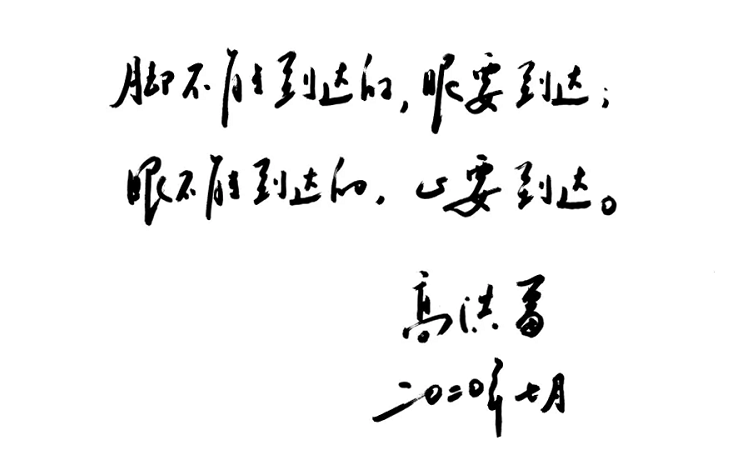 脚不能到达的，眼要到达；
眼不能到达的，心要到达。
高洪雷
二〇二〇年七月